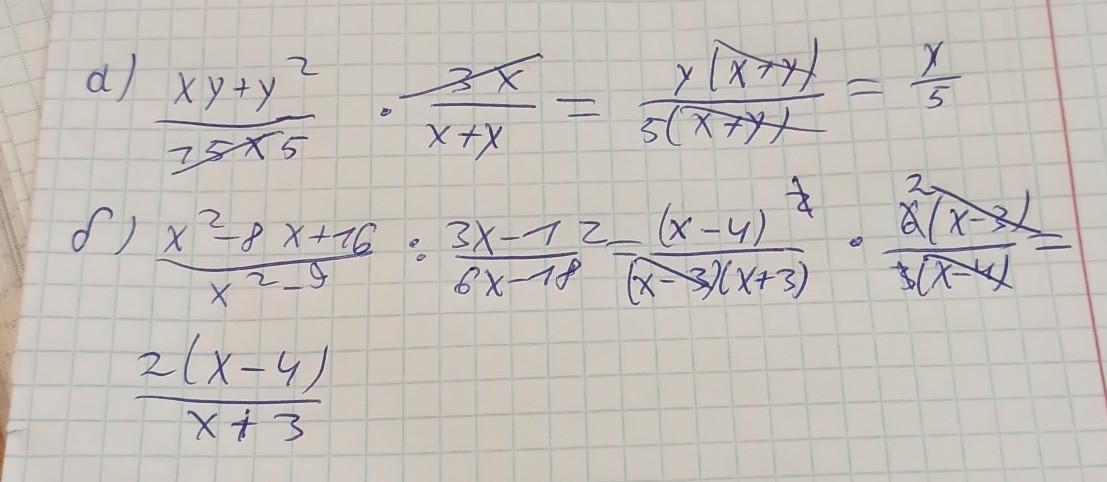 а) (xy+y²)/(15x 5) · (3x)/(x+x) = (y(x+y))/(5(x+y)) = y/5
б) (x²-8x+16)/(x²-9) : (3x-12)/(6x-18) = ((x-4)²)/((x-3)(x+3)) · (6 2(x-3))/(3(x-4)) =
(2(x-4))/(x+3)